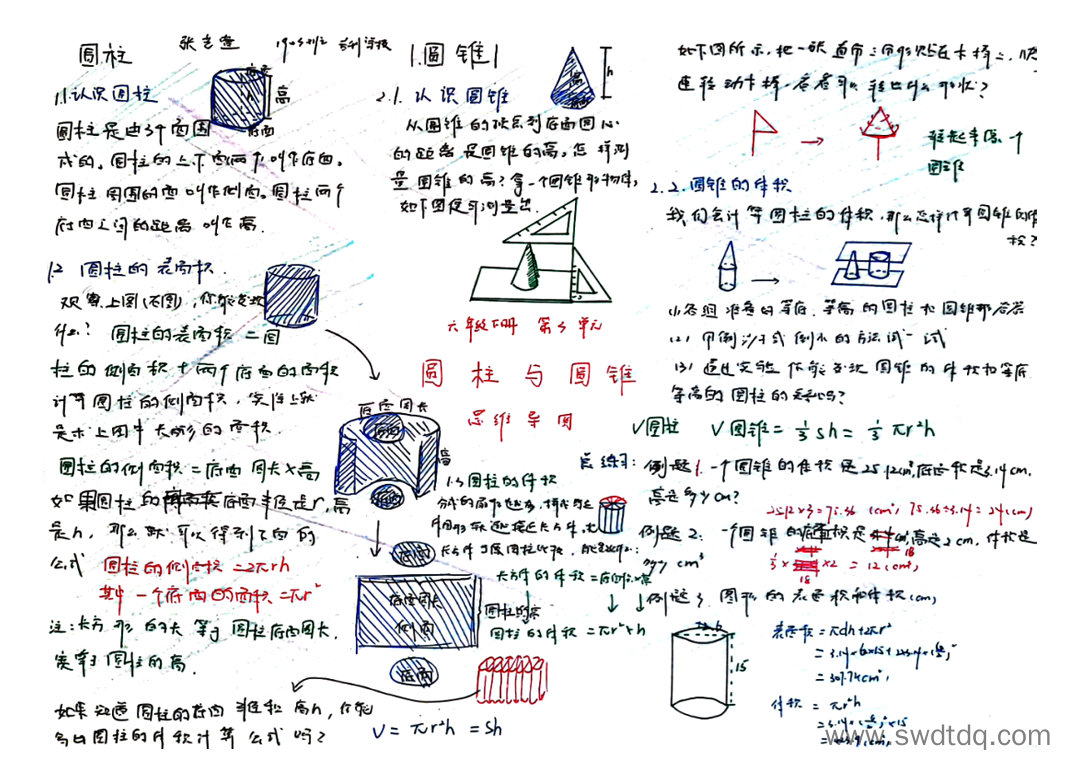 圆柱
1.1.认识圆柱
高
底面
圆柱是由3个面围
成的。圆柱的上下两个面叫作底面。
圆柱周围的面叫作侧面。圆柱两个
底面之间的距离叫作高.
1.2 圆柱的表面积.
什么? 圆柱的表面积 = 圆
柱的侧面积 + 两个底面的面积
计算圆柱的侧面积,实际上就
是求上图中长方形的面积.
圆柱的侧面积 = 底面周长×高
如果圆柱的底面半径是r,高
是h, 那么就可以得到下面的
公式 圆柱的侧面积 = 2πrh
其中一个底面的面积 = πr²
注:长方形的长等于圆柱底面周长,
宽等于圆柱的高.
如果知道圆柱的底面半径和高h,你能
写出圆柱的体积计算公式吗?
底面周长
高
底面
底面周长
侧面
底面
圆柱的高
V = πr²h = Sh
圆锥
2.1. 认识圆锥
h
高
从圆锥的顶点到底面圆心
的距离是圆锥的高。怎样测
量圆锥的高?拿一个圆锥形物体,
如下图便可测量出.
六年级下册 第3单元
圆柱与圆锥
思维导图
1.3 圆柱的体积
长方体的体积 = 底面积×高
圆柱的体积 = πr²×h
如下图所示,把一张直角三角形贴在卡棒上,快
速转动卡棒,看看可以转出什么形状?
转起来像一个
圆锥
2.2.圆锥的体积
我们会计算圆柱的体积,那么怎样计算圆锥的体
积?
(1)各组准备的等底、等高的圆柱和圆锥形容器
(2)用倒沙子或倒水的方法试一试
(3)通过实验你能发现圆锥的体积和等底
等高的圆柱的关系吗?
V圆柱 V圆锥 = 1/3 sh = 1/3 πr²h
总练习:
例题1.一个圆锥的体积是25.12cm³,底面积是3.14cm,
高是多少cm?
25.12×3=75.36 (cm³) 75.36÷3.14=24(cm)
例题2: 一个圆锥的底面积是18cm²,高是2cm,体积是
多少cm³
1/3×18×2 = 12(cm³)
例题3 图形的表面积和体积(cm)
15
表面积 = πdh+2πr²
体积 = πr²h
www.swdtdq.com